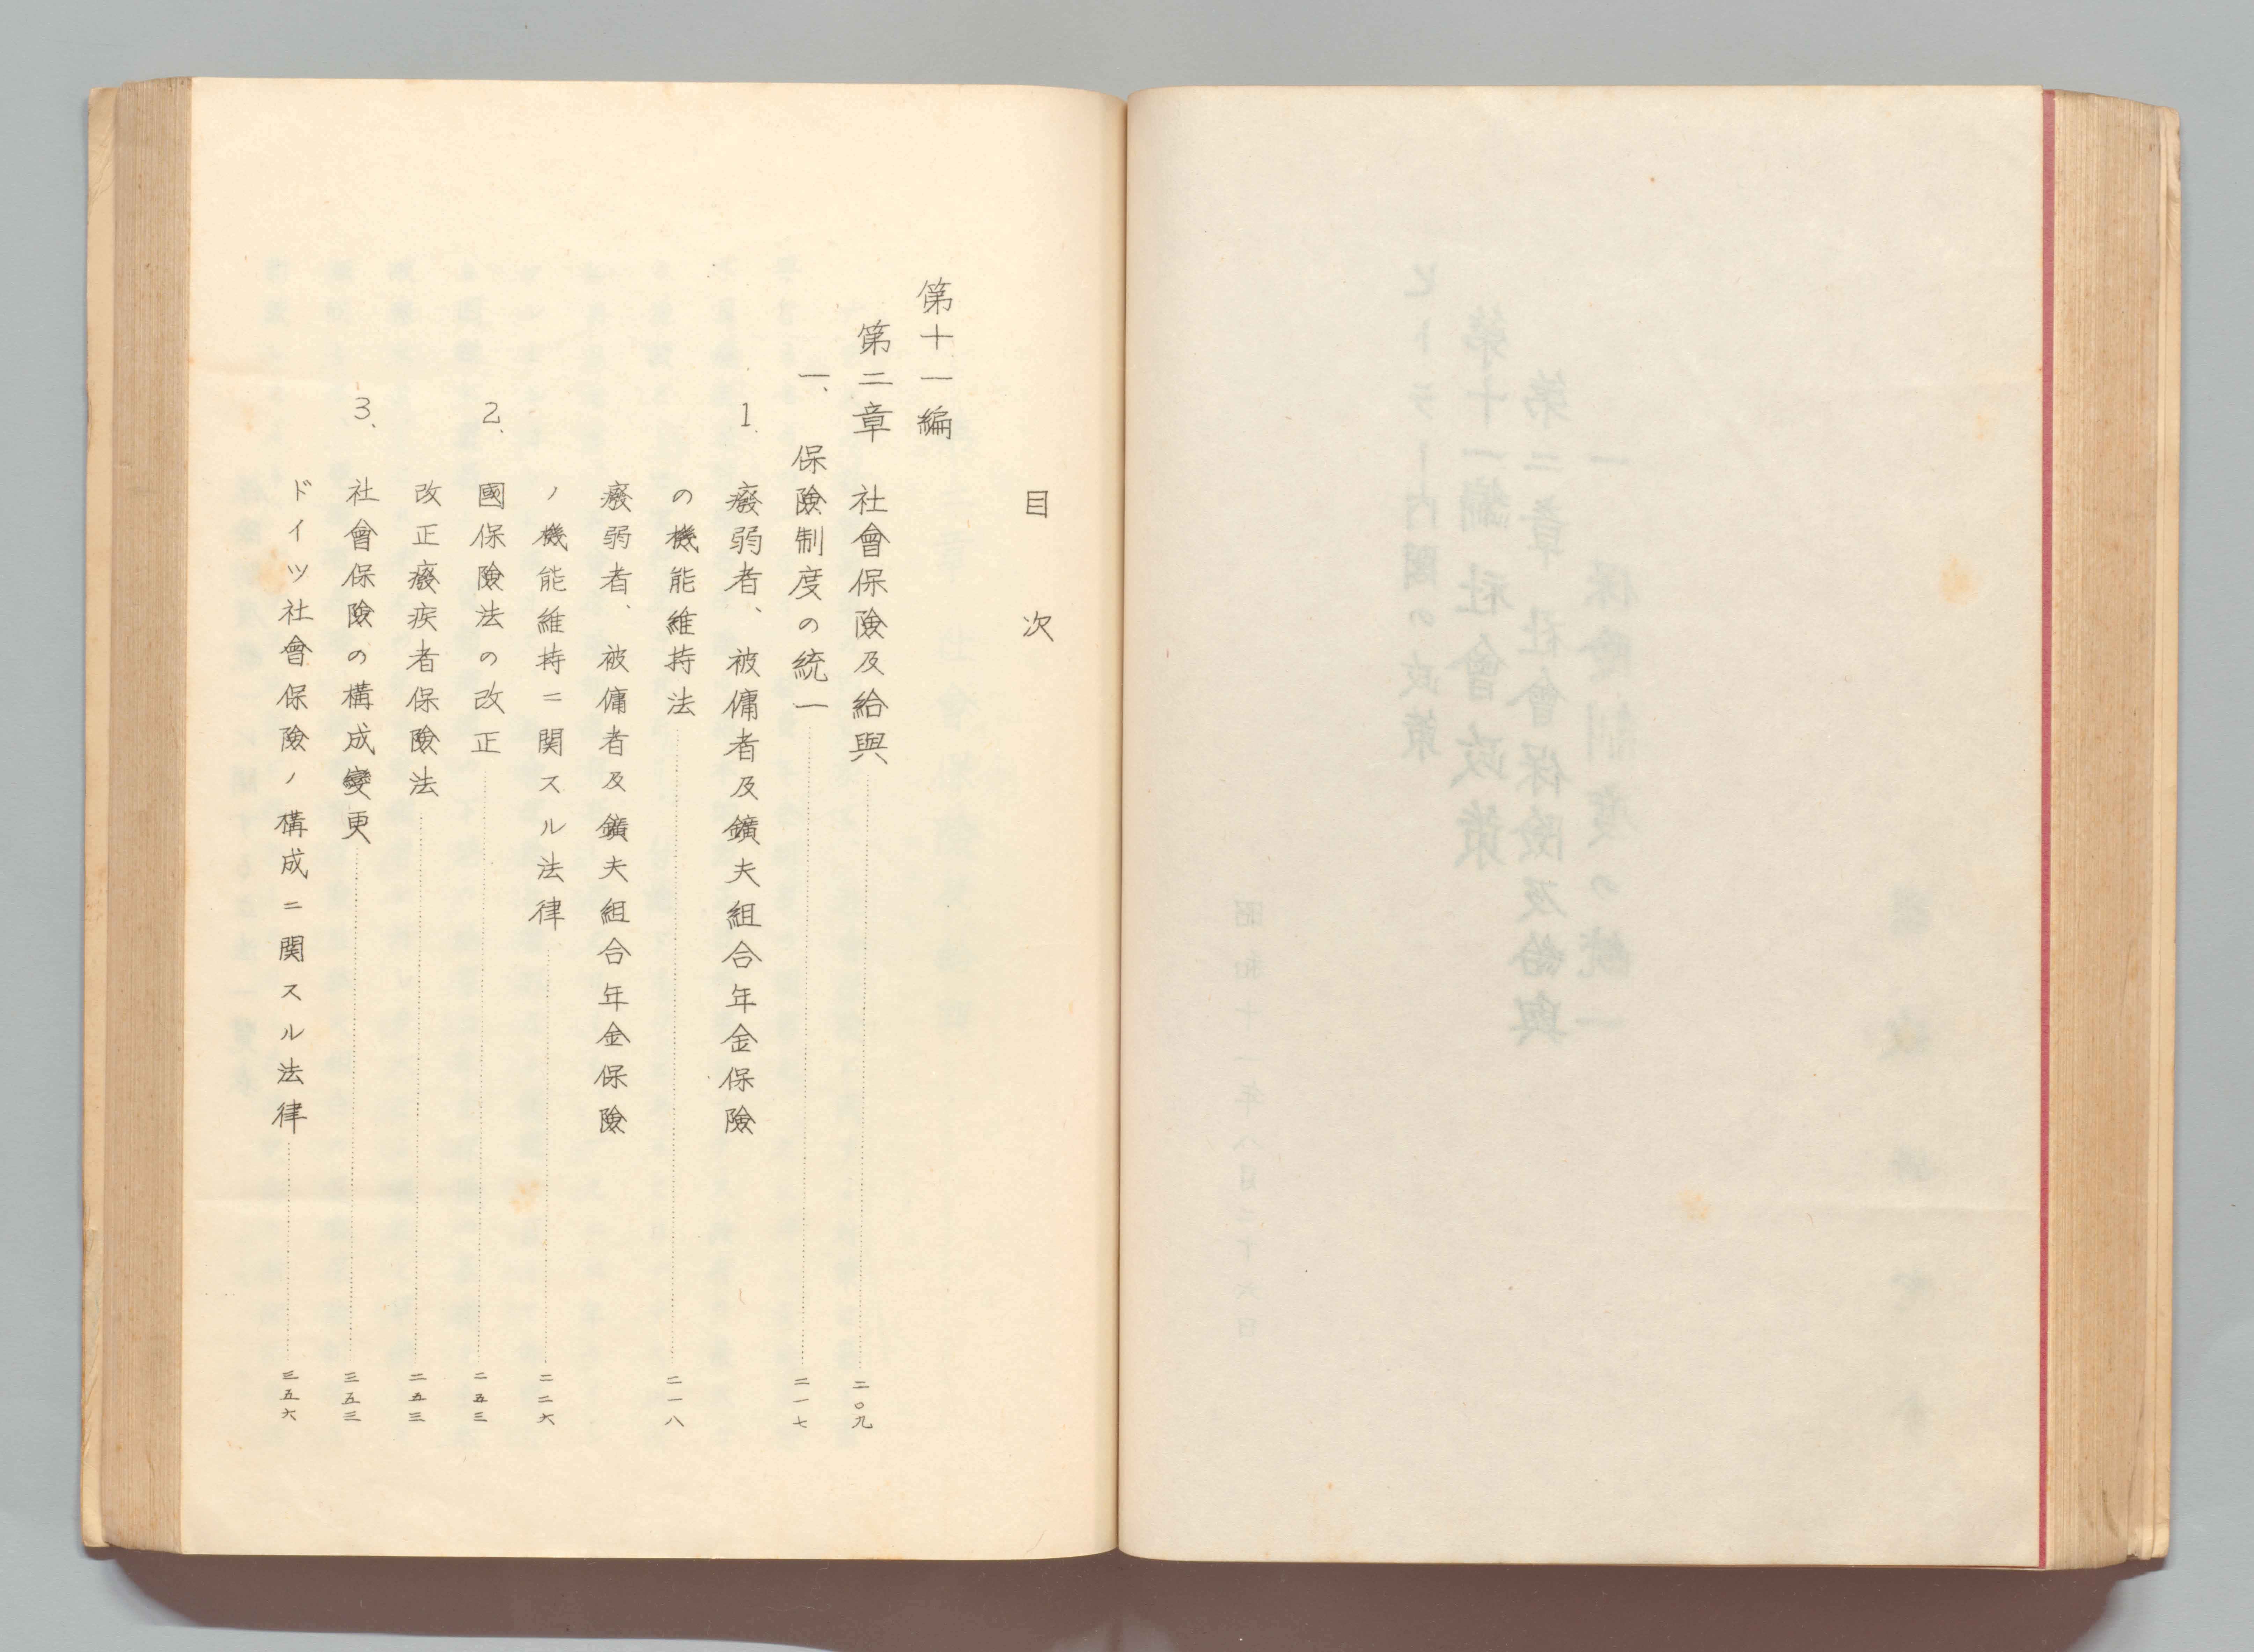 目次
第十一編
第二章 社會保險及給與 二〇九
一、保險制度の統一 二一七
1. 癈弱者、被傭者及鑛夫組合年金保險
の機能維持法 二一八
癈弱者、被傭者及鑛夫組合年金保險
ノ機能維持ニ関スル法律 二二六
2. 國保險法の改正 二五三
改正癈疾者保險法 二五三
3、社會保險の構成變更 三五三
ドイツ社會保險ノ構成ニ関スル法律 三五六